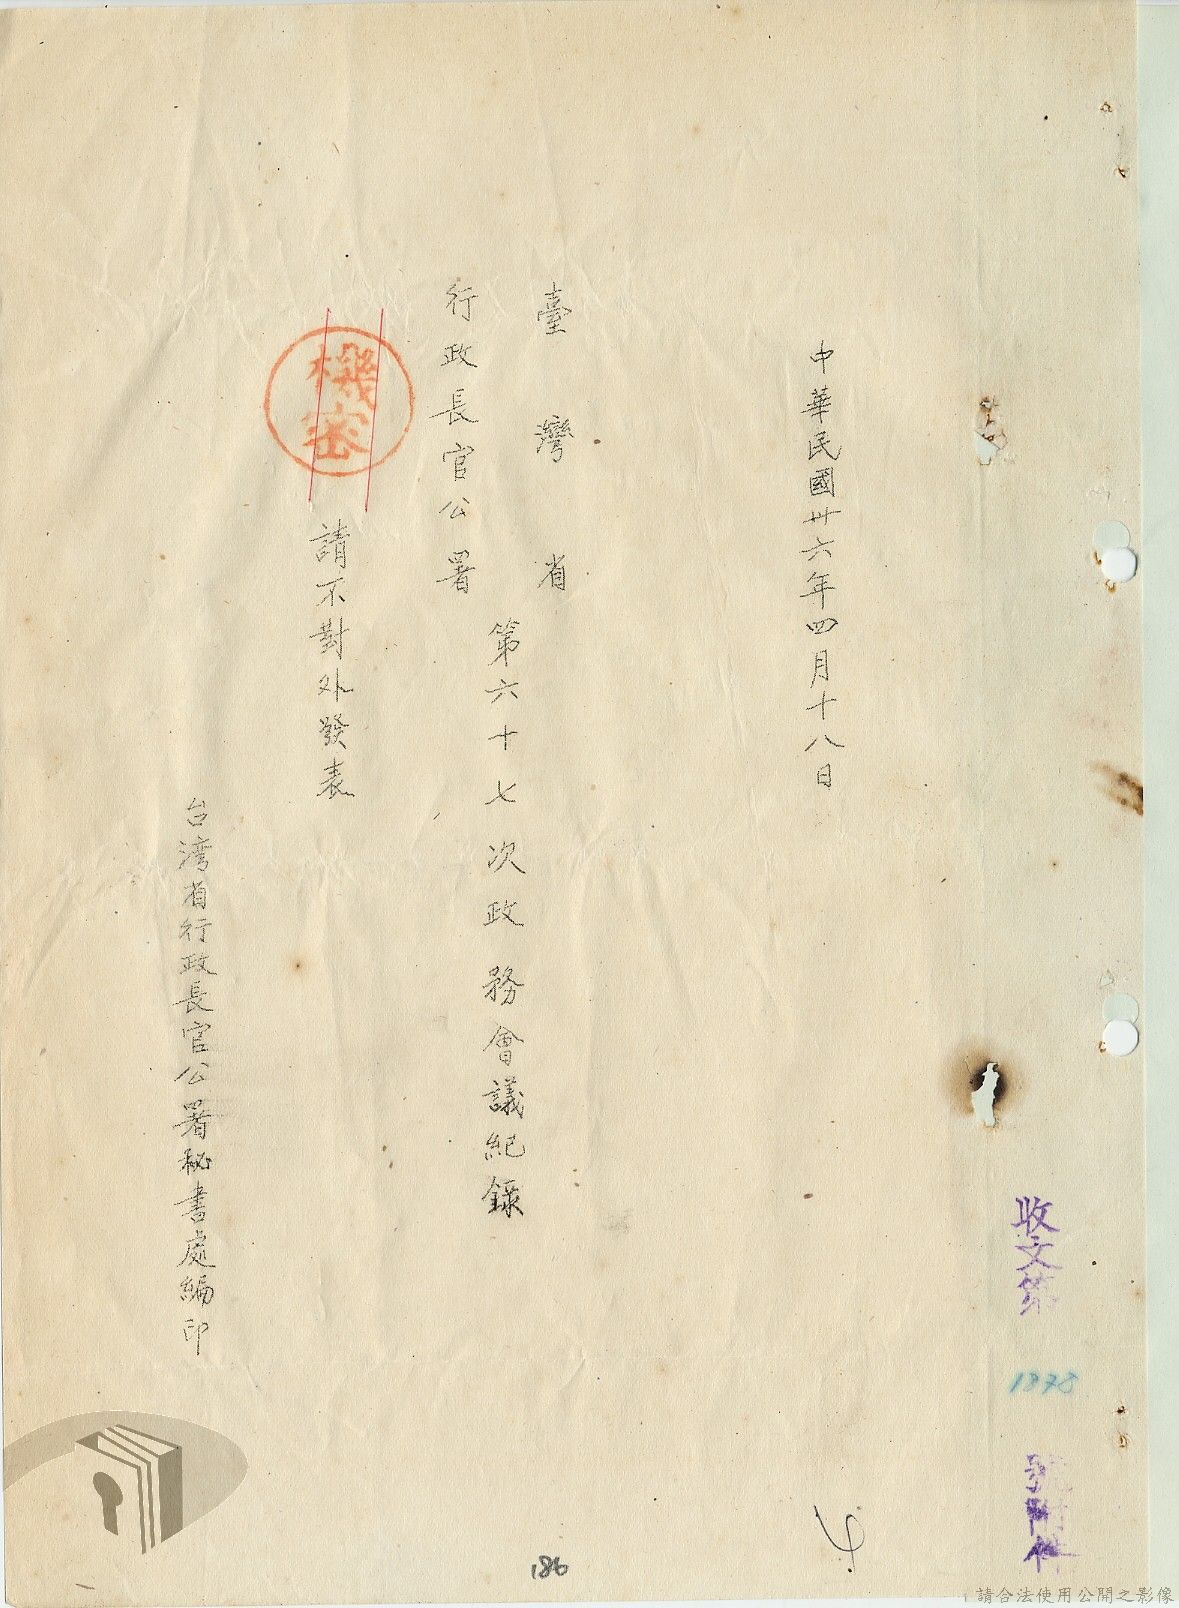 收文第 1878 號附件
中華民國卅六年四月十八日
臺灣省
行政長官公署
第六十七次政務會議紀錄
機密
請不對外發表
台湾省行政長官公署秘書處編印
186
請合法使用公開之影像